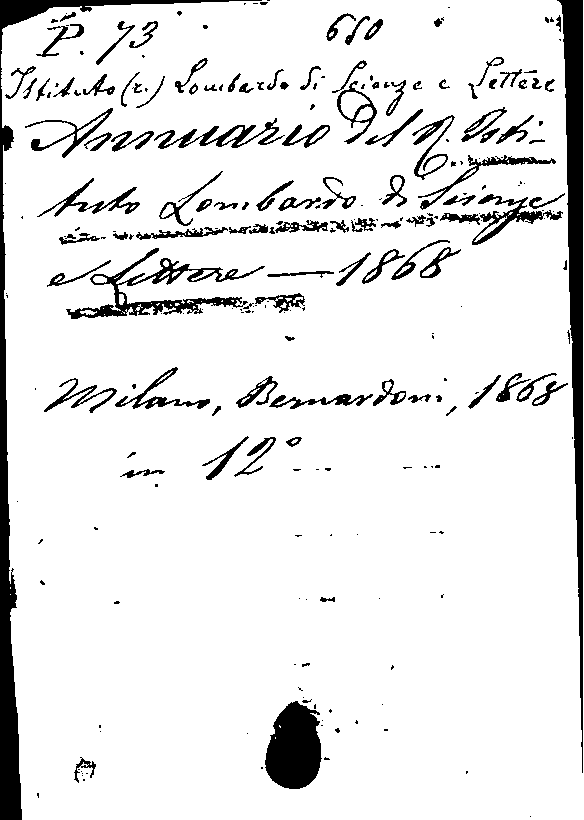 P. 73 650
Istituto (r.) Lombardo di Scienze e Lettere
Annuario del R. Isti-
tuto Lombardo di Scienze
e Lettere — 1868
Milano, Bernardoni, 1868
in 12°